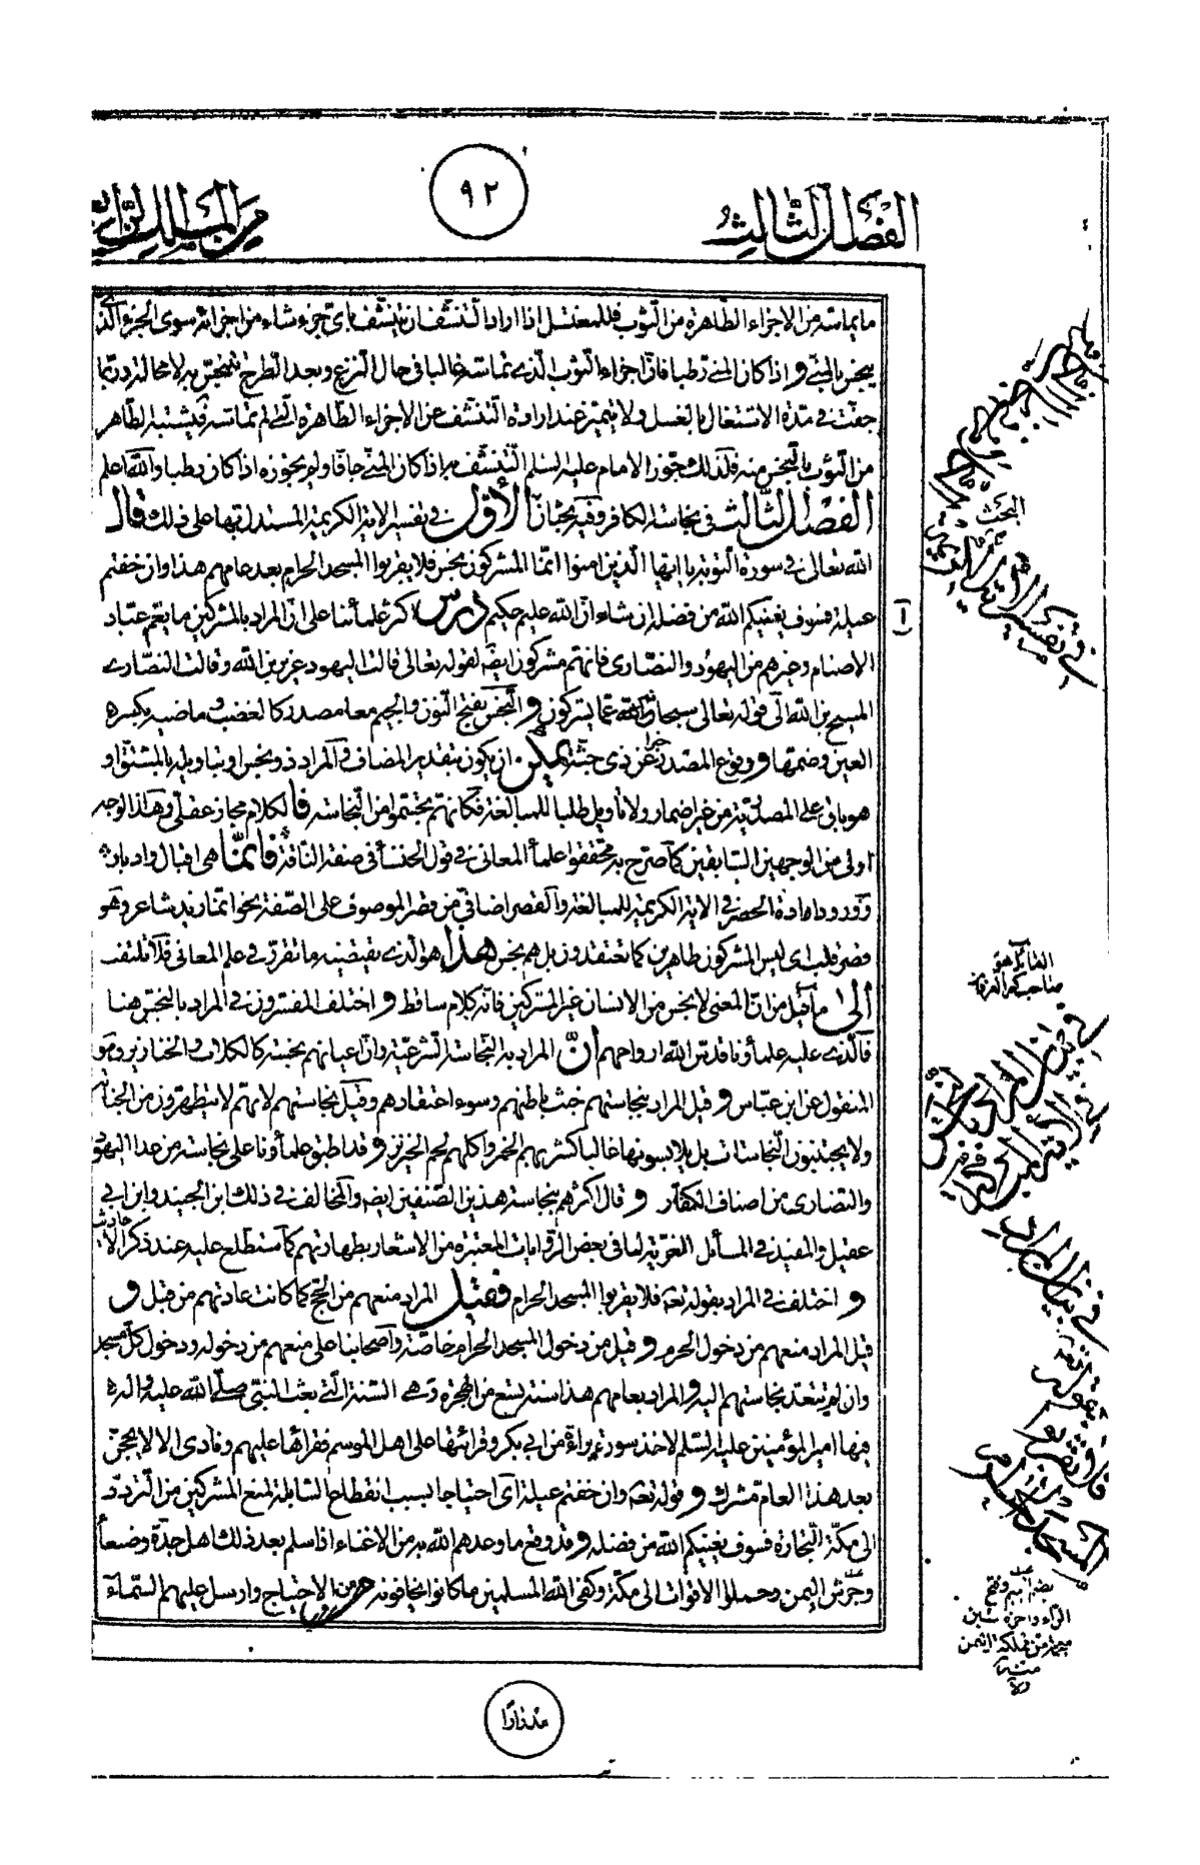 الفصل الثالث
٩٢
من المسلك الرابع
ما يماسه من الاجزاء الطاهرة من الثوب فللمغتسل اذا اراد التنشف ان يتنشف باى جزء شاء من اجزائه سوى الجزء الذى
ينجس بالمنى واذا كان المنى رطبا فان اجزاء الثوب الذى تماسه غالبا فى حال النزع وبعد الطرح تتنجس به لا محالة وربما
جفت فى مدة الاشتغال بالغسل ولا يتميز عند ارادة التنشف عن الاجزاء الطاهرة التى لم تماسه فيشتبه الطاهر
من الثوب بالنجس منه فلذلك جوز الامام عليه السلم التنشف به اذا كان المنى جافا ولم يجوزه اذا كان رطبا والله اعلم
الفصل الثالث فى نجاسة الكافر وفيه بحثان الأول فى تفسير الاية الكريمة المستدل بها على ذلك قال
الله تعالى فى سورة التوبة يا ايها الذين امنوا انما المشركون نجس فلا يقربوا المسجد الحرام بعد عامهم هذا وان خفتم
عيلة فسوف يغنيكم الله من فضله ان شاء ان الله عليم حكيم درس اكثر علمائنا على ان المراد بالمشركين ما يعم عباد
الاصنام وغيرهم من اليهود والنصارى فانهم مشركون ايضا لقوله تعالى قالت اليهود عزير بن الله وقالت النصارى
المسيح بن الله الى قوله تعالى سبحانه عما يشركون والنجس بفتح النون والجيم معا مصدر كالغضب وماضيه بكسر
العين وضمها ووقوع المصدر خبرا عن ذى جثة يمكن ان يكون بتقدير المضاف والمراد ذو نجس او بتاويله بالمشتق او
هو باق على المصدرية من غير اضمار ولا تأويل طلبا للمبالغة فكانهم تجسموا من النجاسة فالكلام مجاز عقلى وهذا الوجه
اولى من الوجهين السابقين كما صرح به محققوا علماء المعانى فى قول الخنسأ فى صفة الناقة فانما هى اقبال وادبار
وورود اداة الحصر فى الاية الكريمة للمبالغة والقصر اضافى من قصر الموصوف على الصفة نحو انما زيد شاعر وهو
قصر قلب اى ليس المشركون طاهرين كما تعتقدون بل هم نجس هذا هو الذى يقتضيه ما تقرر فى علم المعانى فلا تلتفت
الى ما قيل من ان المعنى لا نجس من الانسان غير المشركين فانه كلام ساقط واختلف المفسرون فى المراد بالنجس هنا
فالذى عليه علمأونا قدس الله ارواحهم أن المراد به النجاسة الشرعية وان اعيانهم نجسة كالكلاب والخنازير وهو
المنقول عن ابن عباس وقيل المراد بنجاستهم خبث باطنهم وسوء اعتقادهم وقيل نجاستهم لانهم لا يتطهرون من الجنابة
ولا يجتنبون النجاسات بل يلابسونها غالبا كشربهم الخمر واكلهم لحم الخنزير وقد اطبق علمأونا على نجاسة من عدا اليهود
والنصارى من اصناف الكفار وقال اكثرهم بنجاسة هذين الصنفين ايضا والمخالف فى ذلك ابن الجنيد وابن ابى
عقيل والمفيد فى المسائل الغرية لما فى بعض الروايات المعتبرة من الاشعار بطهارتهم كما ستطلع عليه عند ذكر الاحاديث
واختلف فى المراد بقوله تعه فلا يقربوا المسجد الحرام فقيل المراد منعهم من الحج كما كانت عادتهم من قبل و
قيل المراد منعهم من دخول الحرم وقيل من دخول المسجد الحرام خاصة واصحابنا على منعهم من دخوله ودخول كل مسجد
وان لم تتعد نجاستهم اليه والمراد بعامهم هذا سنة تسع من الهجرة وهى السنة التى بعث النبى صلى الله عليه واله
فيها امير المؤمنين عليه السلم لاخذ سورة براءة من ابى بكر وقرائتها على اهل الموسم فقرأها عليهم ونادى الا لا يحجن
بعد هذا العام مشرك وقوله تعه وان خفتم عيلة اى احتياجا بسبب انقطاع السابلة لمنع المشركين من التردد
الى مكة للتجارة فسوف يغنيكم الله من فضله وقد وقع ما وعدهم الله به من الاغناء اذ اسلم بعد ذلك اهل جدة وصنعأ
وجرش اليمن وحملوا الاقوات الى مكة وكفى الله المسلمين ما كانوا يخافونه من الاحتياج وارسل عليهم السمآء
البحث
فى تفسير
القائل هو
صاحب كنز العرفان
فى بيان المراد
بقوله تعه
فلا يقربوا
المسجد الحرام
بضم الجيم وفتح
الراء واخره شين
معجمة من مملكة اليمن
مدرارا